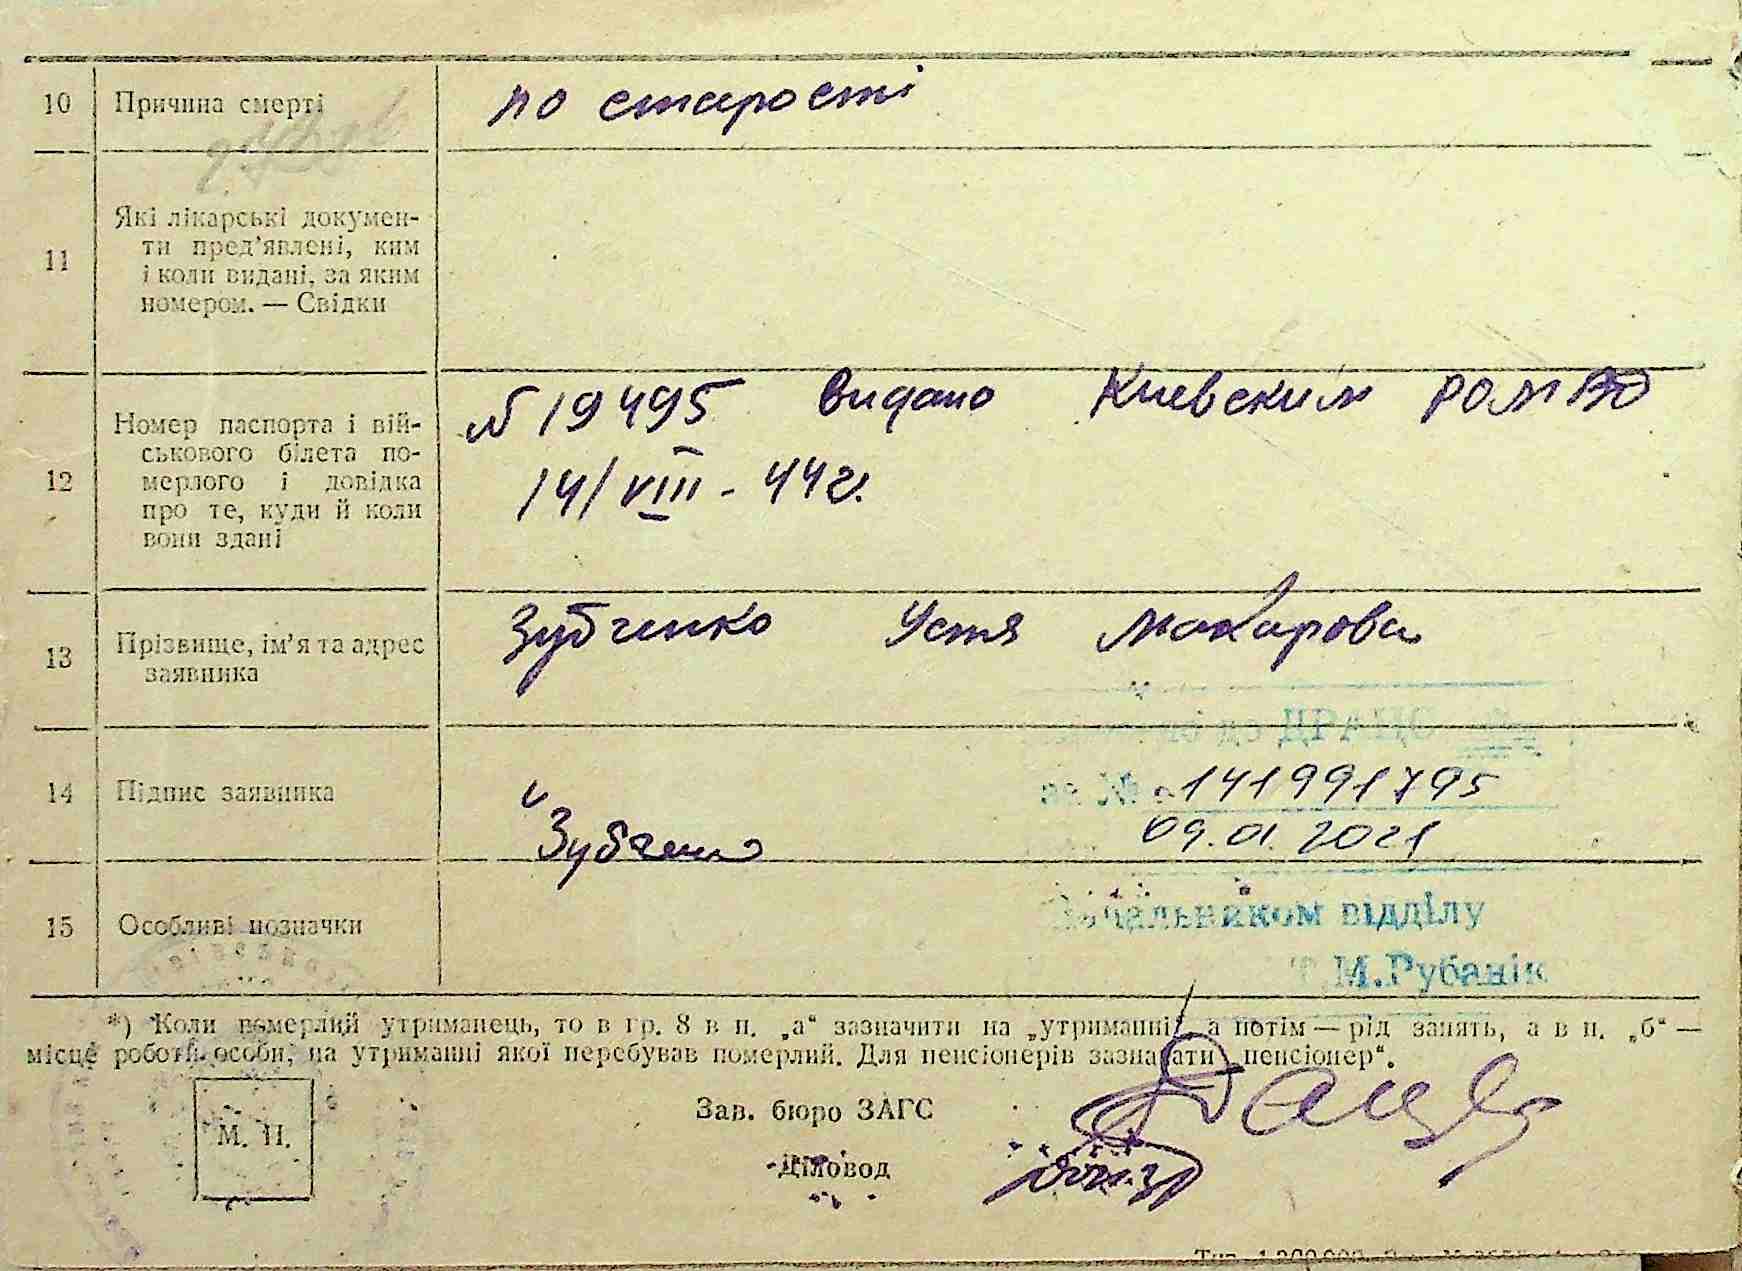 10 Причина смерті по старості
11 Які лікарські докумен-
ти пред'явлені, ким
і коли видані, за яким
номером. — Свідки
12 Номер паспорта і вій-
ськового білета по-
мерлого і довідка
про те, куди й коли
вони здані
№ 19495 видано Киевским РОМВД
14/VIII - 44 г.
13 Прізвище, ім'я та адрес
заявника
Зубченко Устя Макарова
до ДРАЦС
за № 141991795
14 Підпис заявника Зубченко
09.01.2021
15 Особливі позначки
Начальником відділу
Т.М.Рубанік
*) Коли померлий утриманець, то в гр. 8 в п. „а“ зазначити на „утриманні“, а потім — рід занять, а в п. „б“ —
місце роботи особи, на утриманні якої перебував померлий. Для пенсіонерів зазначати „пенсіонер“.
М. П.
Зав. бюро ЗАГС
Діловод